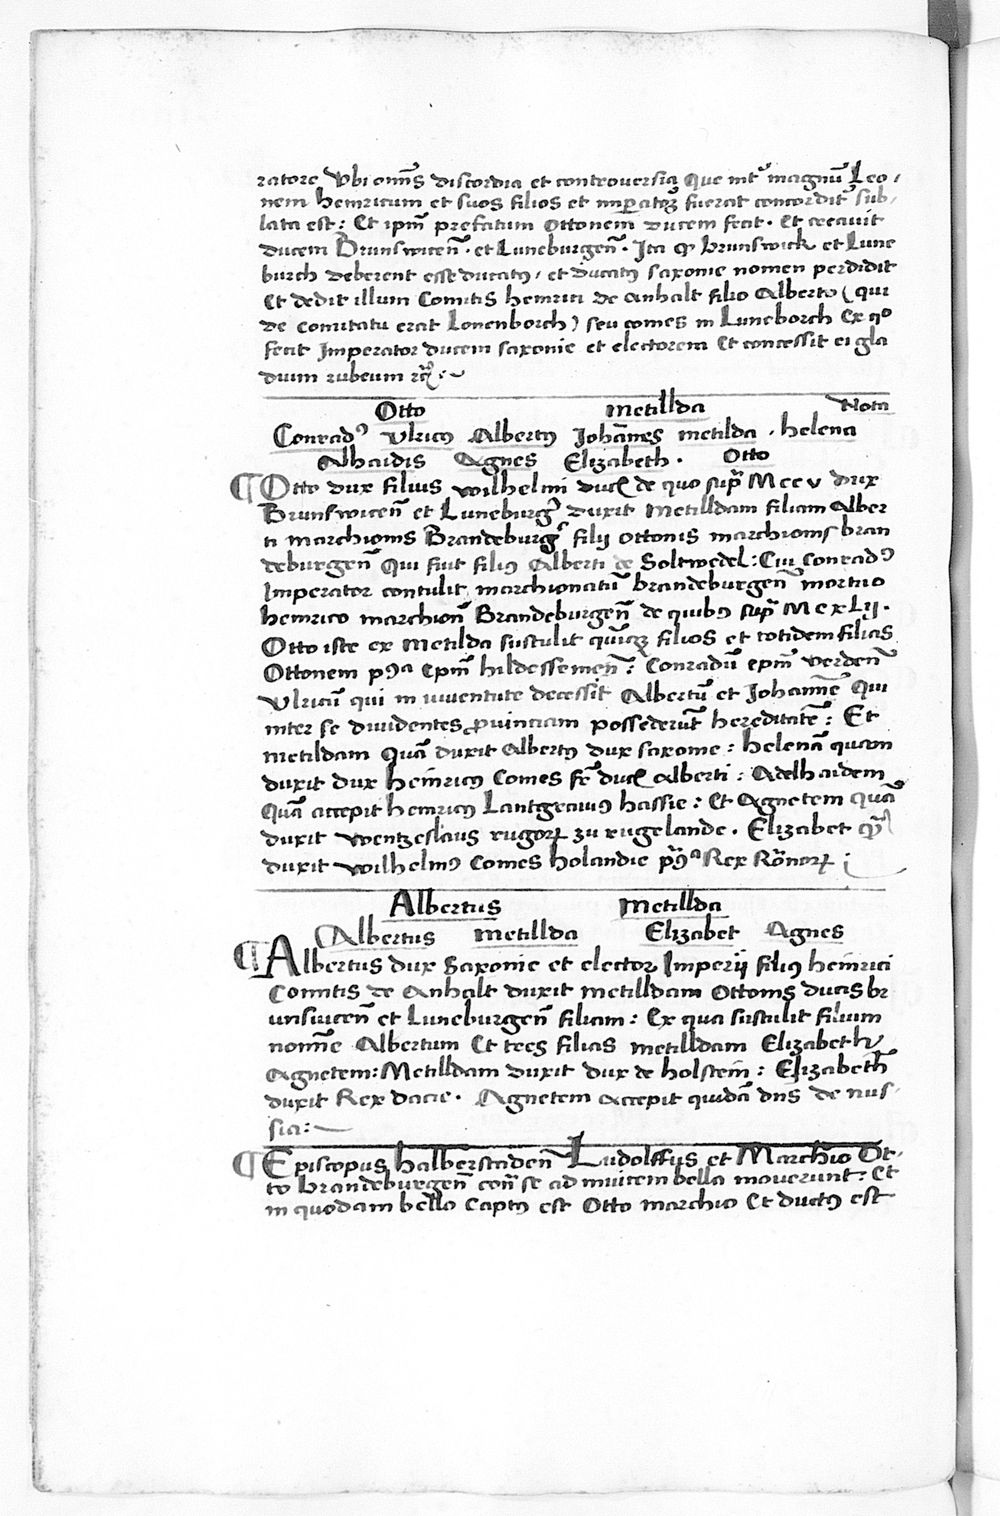 ratore Vbi omīs discordia et controuersia Que int᷑ magnū Leo,
nem heinricum et suos filios et imꝑatorꝫ fuerat concordit᷑ sub,
lata est: Et ipm̄ prefatum Ottonem ducem fecit. Et creauit
ducem Brunswicen̄. et Luneburgen̄. Ita ꝙ brunswick et Lune
burch deberent esse ducatꝰ, et ducatꝰ saxonie nomen perdidit
Et dedit illum Comitis heinrici de anhalt filio Alberto (qui
de comitatu erat Lonenborch) seu comes in Luneborch Ex qͦ
fecit Imperator ducem saxonie et electorem Et concessit ei gla
dium rubeum ꝛc̄:
Otto Metillda Nota
Conradꝰ Vlricꝰ Albertꝰ Johānes metilda. helena
Alhaidis Agnes Elizabeth. Otto
¶ Otto dux filius wilhelmi duc̄ de quo supͣ Mccv dux
Brunswicen̄ et Luneburgꝭ duxit Metilldam filiam Alber
ti marchionis Brandeburgꝭ filij ottonis marchionis bran
deburgen̄ Qui fuit filiꝰ Alberti de Soltwedel: Cui Conradꝰ
Imperator contulit marchionatū brandeburgen̄ mortuo
heinrico marchion̄ Brandeburgen̄ de quibꝰ supͣ Mcxlij.
Otto iste ex Metilda sustulit quīqꝫ filios et totidem filias
Ottonem pꝰᵃ epm̄ hildessemen̄: Conradū epm̄ verden̄
Vlricū qui in iuuentute decessit Albertū et Johannē Qui
inter se diuidentes ꝓuinciam possederūt hereditatē: Et
metildam Quā duxit Albertꝰ dux saxonie: helenā quam
duxit dux heinricꝰ Comes fr̄ duc̄ alberti: Adelhaidem
Quā accepit heinricꝰ Lantgrauiꝰ hassie: Et Agnetem quā
duxit wentzeslaus rugorꝝ zu rugelande. Elizabet qͣ̄
duxit wilhelmꝰ Comes holandie pꝰᵃ Rex Rōnorꝝ;
Albertus Metillda
Albertus Metillda Elizabet Agnes
¶ Albertus dux Saxonie et elector Imperij filiꝰ heinrici
Comitis de Anhalt duxit metilldam Ottonis ducis br
unswicen̄ et Luneburgen̄ filiam: Ex qua sustulit filium
nomīe Albertum Et tres filias metilldam Elizabeth
Agnetem: Metilldam duxit dux de holstein: Elizabeth
duxit Rex dacie. Agnetem accepit quidā dn̄s de rus,
sia:
¶ Episcopus halberstaden̄ Ludolffus et Marchio Ot,
to brandeburgen̄ con̄ se ad inuicem bella mouerunt: Et
in quodam bello Captꝰ est Otto marchio Et ductꝰ est